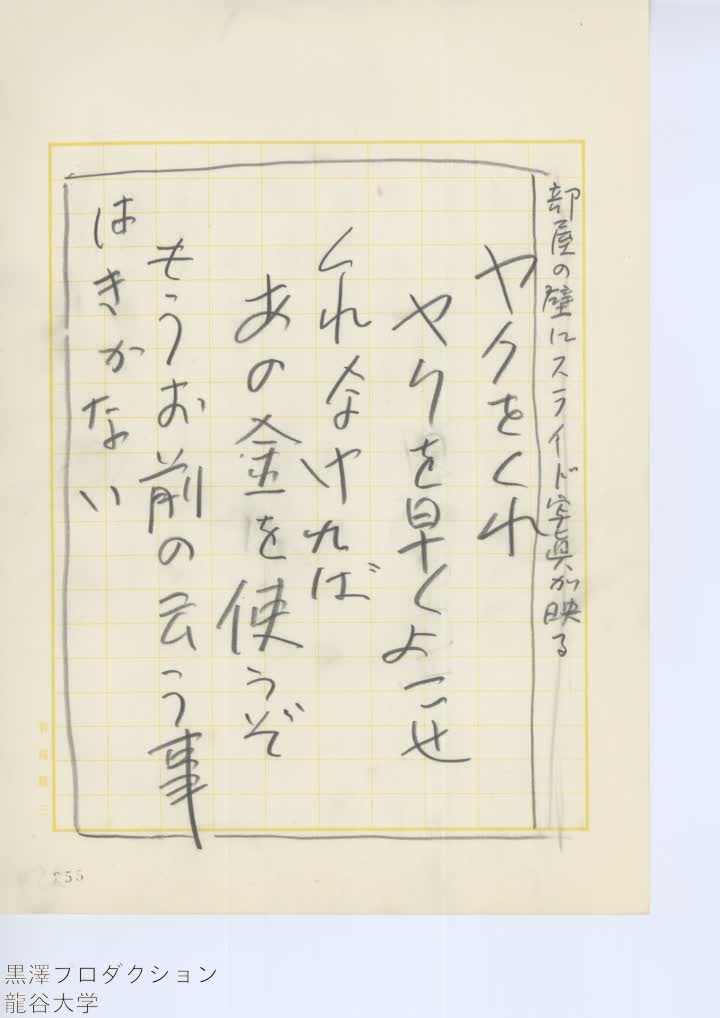 部屋の壁にスライド写真が映る
ヤクをくれ
ヤクを早くよこせ
くれなければ
あの金を使うぞ
もうお前の云う事
はきかない
255
黒澤プロダクション
龍谷大学